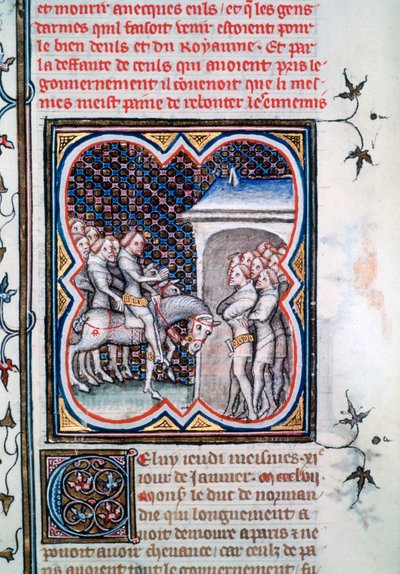 et mourir avecques euls / et que les gens
darmes quil faisoit venir estoient pour
le bien deuls et du Royaume · Et par
la deffaute de ceuls qui avoient pris le
gouvernement il convenoit que li mes
mes meist paine de rebouter les ennemis
Celuy jeudi meismes · xi ·
jour de Janvier · m ccc lvii ·
mons le duc de norman
die qui longuement a
voit demoure a paris et ne
povoit avoir chevance / car ceulz de pa
ris avoient tout le